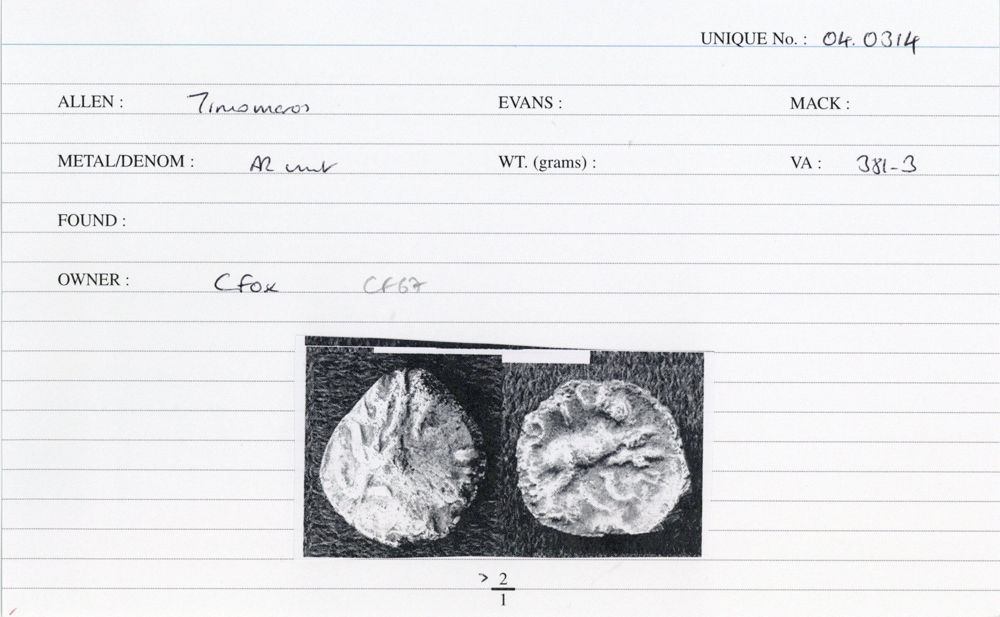 UNIQUE No. : 04.0314
ALLEN : Tinsomeros EVANS : MACK :
METAL/DENOM : AR unit WT. (grams) : VA : 381-3
FOUND :
OWNER : C Fox CF67
> 2
1